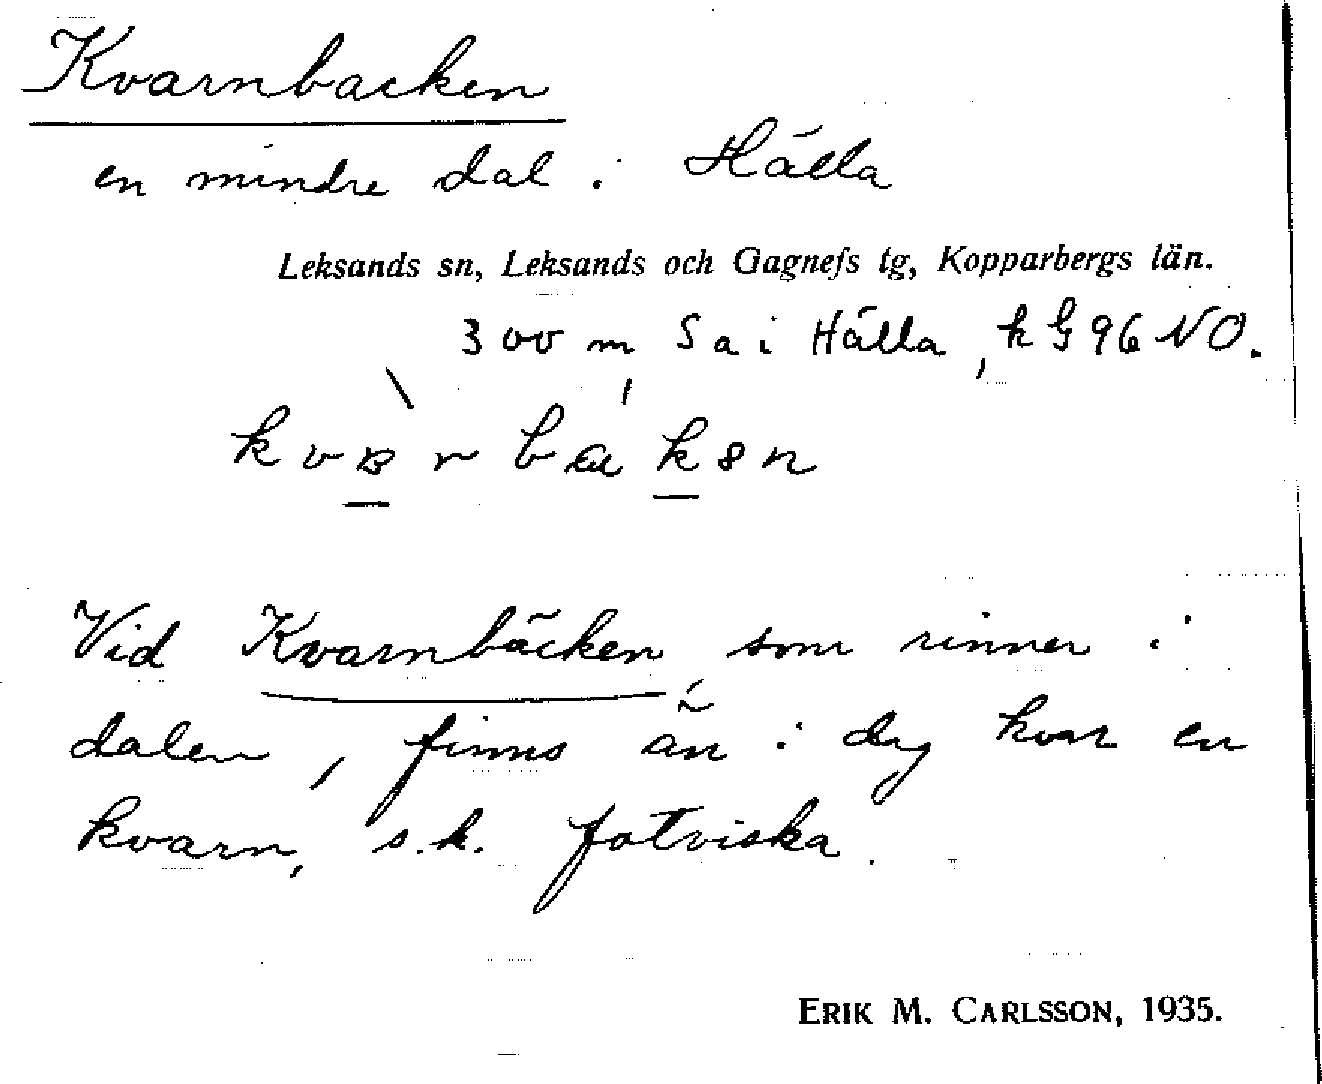 Kvarnbacken
en mindre dal i Hälla
Leksands sn, Leksands och Gagnefs tg, Kopparbergs län.
300 m S a i Hälla, k G 96 NO.
Vid Kvarnbäcken som rinner i
dalen, finns än i dag kvar en
kvarn, s.k. fotviska.
ERIK M. CARLSSON, 1935.